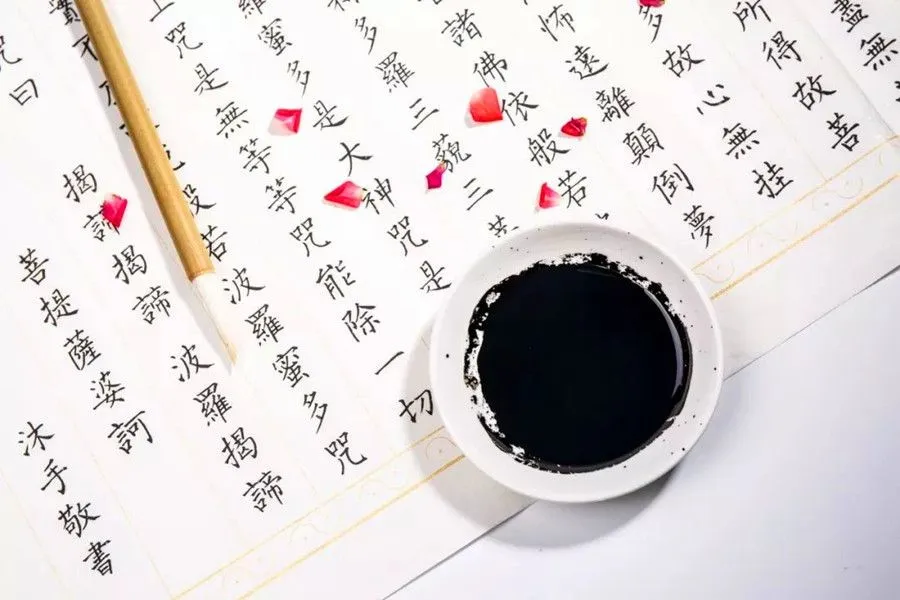 盡無
所得故菩
多故心無挂
怖遠離顛倒夢
諸佛依般若
多羅三藐三菩
羅蜜多是大神咒是
上咒是無等等咒能除一切
實不般若波羅蜜多咒
咒曰 揭諦揭諦 波羅揭諦
菩提薩婆訶
沐手敬書